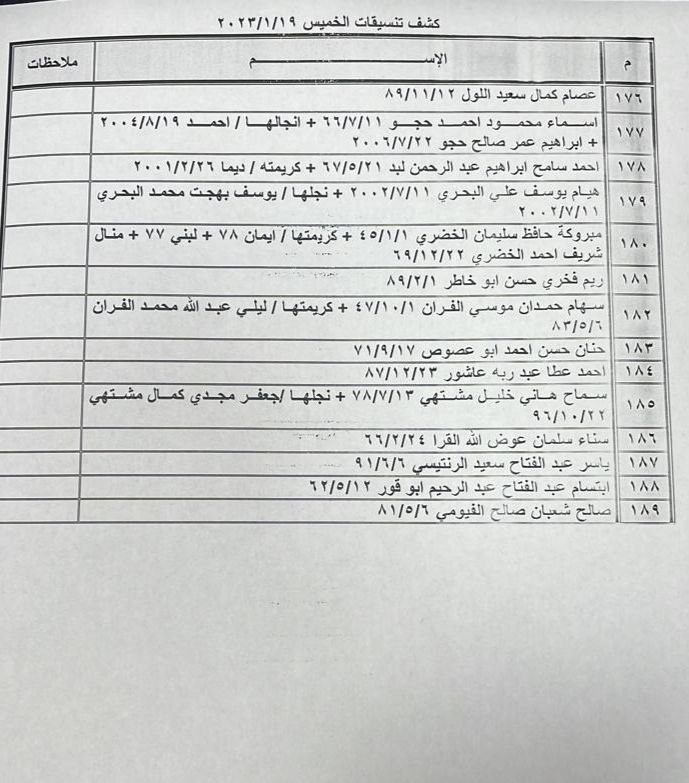 كشف تنسيقات الخميس ٢٠٢٣/١/١٩
م الإســـــــم ملاحظات
١٧٦ عصام كمال سعيد اللول ٨٩/١١/١٢
١٧٧ اسـماء محمـود احمـد حجـو ٦٦/٧/١١ + انجالهـا / احمـد ٢٠٠٤/٨/١٩
+ ابراهيم عمر صالح حجو ٢٠٠٦/٧/٢٢
١٧٨ احمد سامح ابراهيم عبد الرحمن لبد ٦٧/٥/٢١ + كريمته / ديما ٢٠٠١/٢/٢٦
١٧٩ هيـام يوسـف علـي البحـري ٢٠٠٢/٧/١١ + نجلهـا / يوسـف بهجـت محمـد البحـري
٢٠٠٢/٧/١١
١٨٠ مبروكة حافظ سليمان الخضري ٤٥/١/١ + كريمتها / ايمان ٧٨ + لبني ٧٧ + منال
شريف احمد الخضري ٦٩/١٢/٢٢
١٨١ ريم فخري حسن ابو خاطر ٨٩/٢/١
١٨٢ سـهام حمـدان موسـي الفـران ٤٧/١٠/١ + كريمتهـا / ليلـي عبـد الله محمـد الفـران
٨٣/٥/٦
١٨٣ حنان حسن احمد ابو عصوص ٧١/٩/١٧
١٨٤ احمد عطا عبد ربه عاشور ٨٧/١٢/٢٣
١٨٥ سـماح هـاني خليـل مشـتهي ٧٨/٧/١٣ + نجلهـا /جعفـر مجـدي كمـال مشـتهي
٩٦/١٠/٢٢
١٨٦ سناء سلمان عوض الله القرا ٦٦/٢/٢٤
١٨٧ ياسر عبد الفتاح سعيد الرنتيسي ٩١/٦/٦
١٨٨ ابتسام عبد الفتاح عبد الرحيم ابو قور ٦٢/٥/١٢
١٨٩ صالح شعبان صالح الفيومي ٨١/٥/٦